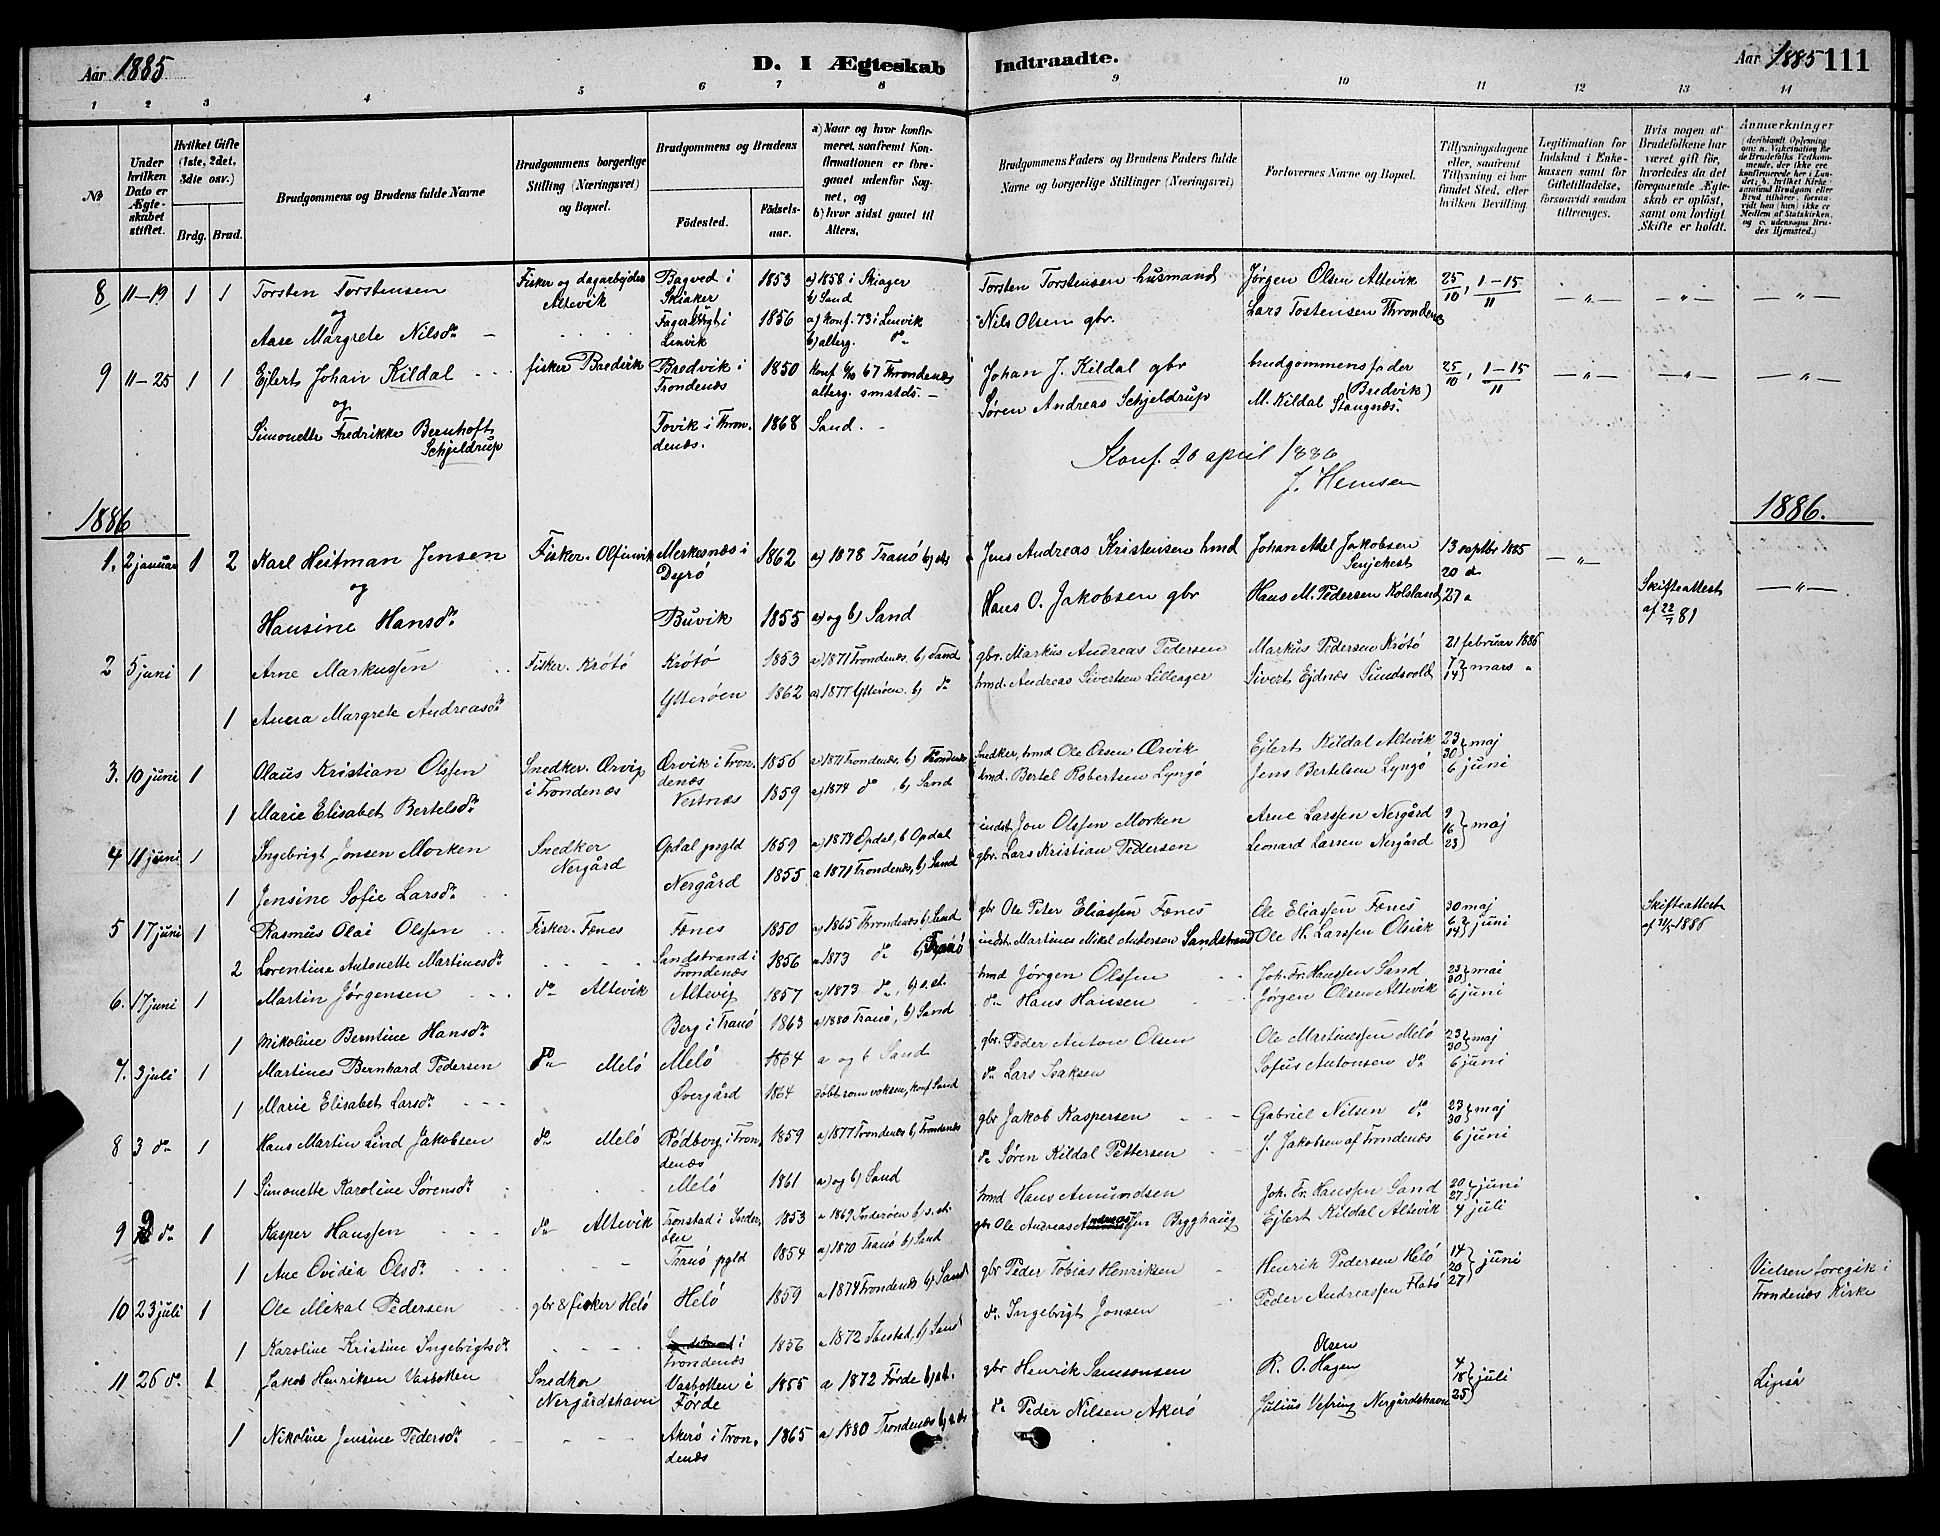 Aar 1885
D. I Ægteskab Indtraadte.
Aar 1885 111
1 2 3 4 5 6 7 8 9 10 11 12 13 14
No
Under hvilken Dato er Ægteskabet stiftet.
Hvilket Gifte (1ste, 2det, 3die osv.)
Brdg. Brud.
Brudgommens og Brudens fulde Navne
Brudgommens borgerlige Stilling (Næringsvei) og Bopæl.
Brudgommens og Brudens
Födested. Födsels-aar.
a) Naar og hvor konfirmeret, saafremt Konfirmationen er foregaaet udenfor Sognet, og
b) hvor sidst gaaet til Alters.
Brudgommens Faders og Brudens Faders fulde Navne og borgerlige Stillinger (Næringsvei)
Forlovernes Navne og Bopæl.
Tillysningsdagene eller, saafremt Tillysning ei har fundet Sted, efter hvilken Bevilling.
Legitimation for Indskud i Enkekassen samt for Giftetilladelse, forsaavidt saadan tiltrænges.
Hvis nogen af Brudefolkene har været gift för, hvorledes da det foregaaende Ægteskab er oplöst, samt om lovligt Skifte er holdt.
Anmærkninger
8 11-19 1 1 Torsten Torstensen Fisker og dagarbejder Altevik Bagved i Skiaker 1853 a) 1858 i Skiager b) Sand Torsten Torstensen husmand Jørgen Olsen Altevik 25/10, 1-15/11 — „ — — „ — — „ —
og
Aase Margrete Nilsdr. Lenvik 1856 a) konf. 73 i Lenvik b) alterg. do Nils Olsen gbr. Lars Tostensen Throndenæs
9 11-25 1 1 Ejlert Johan Kildal fisker Bredvik i Trondenæs 1850 konf 67 Throndenæs alterg. smstds. Johan J. Kildal gbr brudgommens fader (Bredvik) 25/10, 1-15/11 — „ — — „ — — „ —
og
Simonette Fredrikke Bernhoft Schjeldrup Tovik i Throndenæs. 1868 Sand. Søren Andreas Schjeldrup M. Kildal Stangnæs.
Konf. 20 april 1886
J. Hemsen
1886 1886.
1. 2 januar 1 2 Karl Heitman Jensen Fisker. Merkesnæs i Dyrö 1862 a) 1878 Tranö b) st. Jens Andreas Kristensen hmd Johan Abel Jakobsen Senjehest 13 septbr 1885 20 d — „ —
og
Hansine Hansdr. Buvik 1855 a) og b) Sand Hans O. Jakobsen gbr Hans M. Pedersen Kolsland 27 „ Skifteattest af 22/7 81 — „ —
2 5 juni 1 Arne Markussen Fisker. Krötö Krötö 1853 a) 1871 Trondenæs. b) Sand gbr. Markus Andreas Pedersen Markus Pedersen Krötö 21 februar 1886
1 Anna Margrete Andreasdr. Ytterøen 1862 a) 1877 Ytterøen. b) do hmd. Andreas Sivertsen Lilleager Sivert Ejdnes Sundsvold 7 14 } mars „
3. 10 juni 1 Olaus Kristian Olssen Snedker. Ørvig i Trondenæs Ørvik i Trondenæs 1856 a) 1871 Trondenæs. b) Trondenæs Snedker, hmd Ole Olsen Ørvik Ejlert Kildal Altevik 23 30 } maj
1 Marie Elisabet Bertelsdr. Vestnæs 1859 a) 1874 do b) Sand hmd. Bertel Robertsen Lyngö Jens Bertelsen Lyngö 6 juni
4 11 juni 1 Ingebrigt Jonsen Morken Snedker Nergård Opdal pngld 1859 a) 1874 Opdal, b Opdal indst. Jon Olssen Morken Arne Larssen Nergård 9 16 23 } maj
1 Jensine Sofie Larsdr. Nergård 1855 a 1871 Trondenæs, b) Sand gbr. Lars Kristian Pedersen Leonard Larsen Nergård
5 17 juni 1 Rasmus Olai Olssen Fisker. Fænes Fænes 1850 a) 1865 Throndenæs b) Sand gbr Ole Peter Eliassen Fænes Ole Eliassen Fænes 30 maj Skifteattest af 11/5 1886
2 Lorentine Antonette Martinesdr. Sandstrand i Trondenæs 1856 a 1873 do b) Tranö indst. Martines Mikal Andersen Sandstrand Ole H. Larssen Olsvik 6 14 } juni
6. 17 juni 1 Martin Jørgensen do Altevik Altevig 1857 a) 1873 do, b) s. st. hmd Jørgen Olssen Joh. Fr. Hanssen Sand 23 30 } maj
1 Nikoline Berntine Hansdr. Berg i Tranö 1863 a) 1880 Tranö, b) Sand do Hans Hansen Jørgen Olsen Altevik 6 juni
7. 3 juli 1 Martines Bernhard Pedersen do Melö Melö 1864 a og b Sand gbr. Peder Anton Olsen Ole Martinussen Melö 23 30 } maj
1 Marie Elisabet Larsdr. Övergård 1864 döbt som voksen, konf Sand do Lars Isaksen Sofus Antonsen do 6 juni
8 3 do 1 Hans Martin Lind Jakobsen do Melö Rödberg i Trondenæs 1859 a) 1877 Trondenæs b) Trondenæs gbr Jakob Kaspersen Gabriel Nilsen do 23 30 } maj
1 Simonette Karoline Sørensdr. Melö 1861 a) og b) Sand do Søren Kildal Pettersen J. Jakobsen af Trondenæs 6 juni
9 9 do 1 Kasper Hanssen do Altevik Tronstad i Inderöen 1853 a 1869 Inderöen b) s. st. hmd Hans Amundsen Joh. Fr. Hanssen Sand 20 27 } juni
1 Ane Ovidia Olsdr. Tranö pgld 1854 a) 1870 Tranö b) Sand gbr Ole Andreas Andreassen Bygghaug Ejlert Kildal Altevik 4 juli
10 23 juli 1 Ole Mikal Pedersen gbr & fisker Helö Helö 1859 a 1874 Trondenæs b) Sand gbr Peder Tobias Henriksen Henrik Pedersen Helö 14 20 27 } juni Vielsen foregik i Trondenæs Kirke
1 Karoline Kristine Ingebrigtsdr. i Trondenæs 1856 a 1872 Ibestad, b) Sand do Ingebrigt Jonsen Peder Andreassen Flatö
11 26 do. 1 Jakob Henriksen Vasbotten Snedker Nergårdshavn Vasbotten i Førde 1855 a 1872 Førde b) st. gbr Henrik Samsonsen R. O. Olsen Hagen 4 18 25 } juli
1 Nikoline Jensine Pedersdr. Akerö i Trondenæs 1865 a) 1880 Trondenæs b) s. st. do Peder Nilsen Akerö Julius Vefring Nergårdshavn